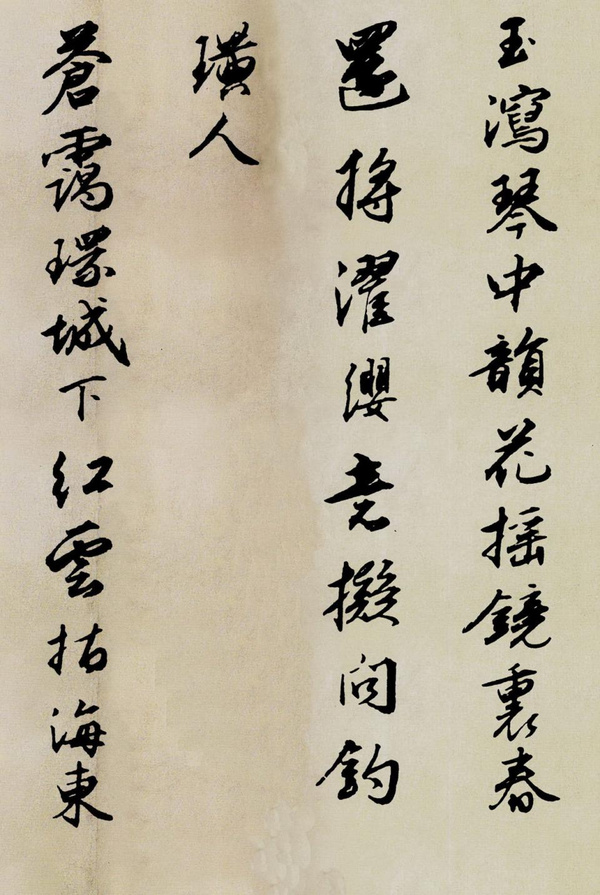 玉瀉琴中韻花搖鏡裏春
還將濯纓意擬問釣
璜人
蒼靄環城下紅雲指海東